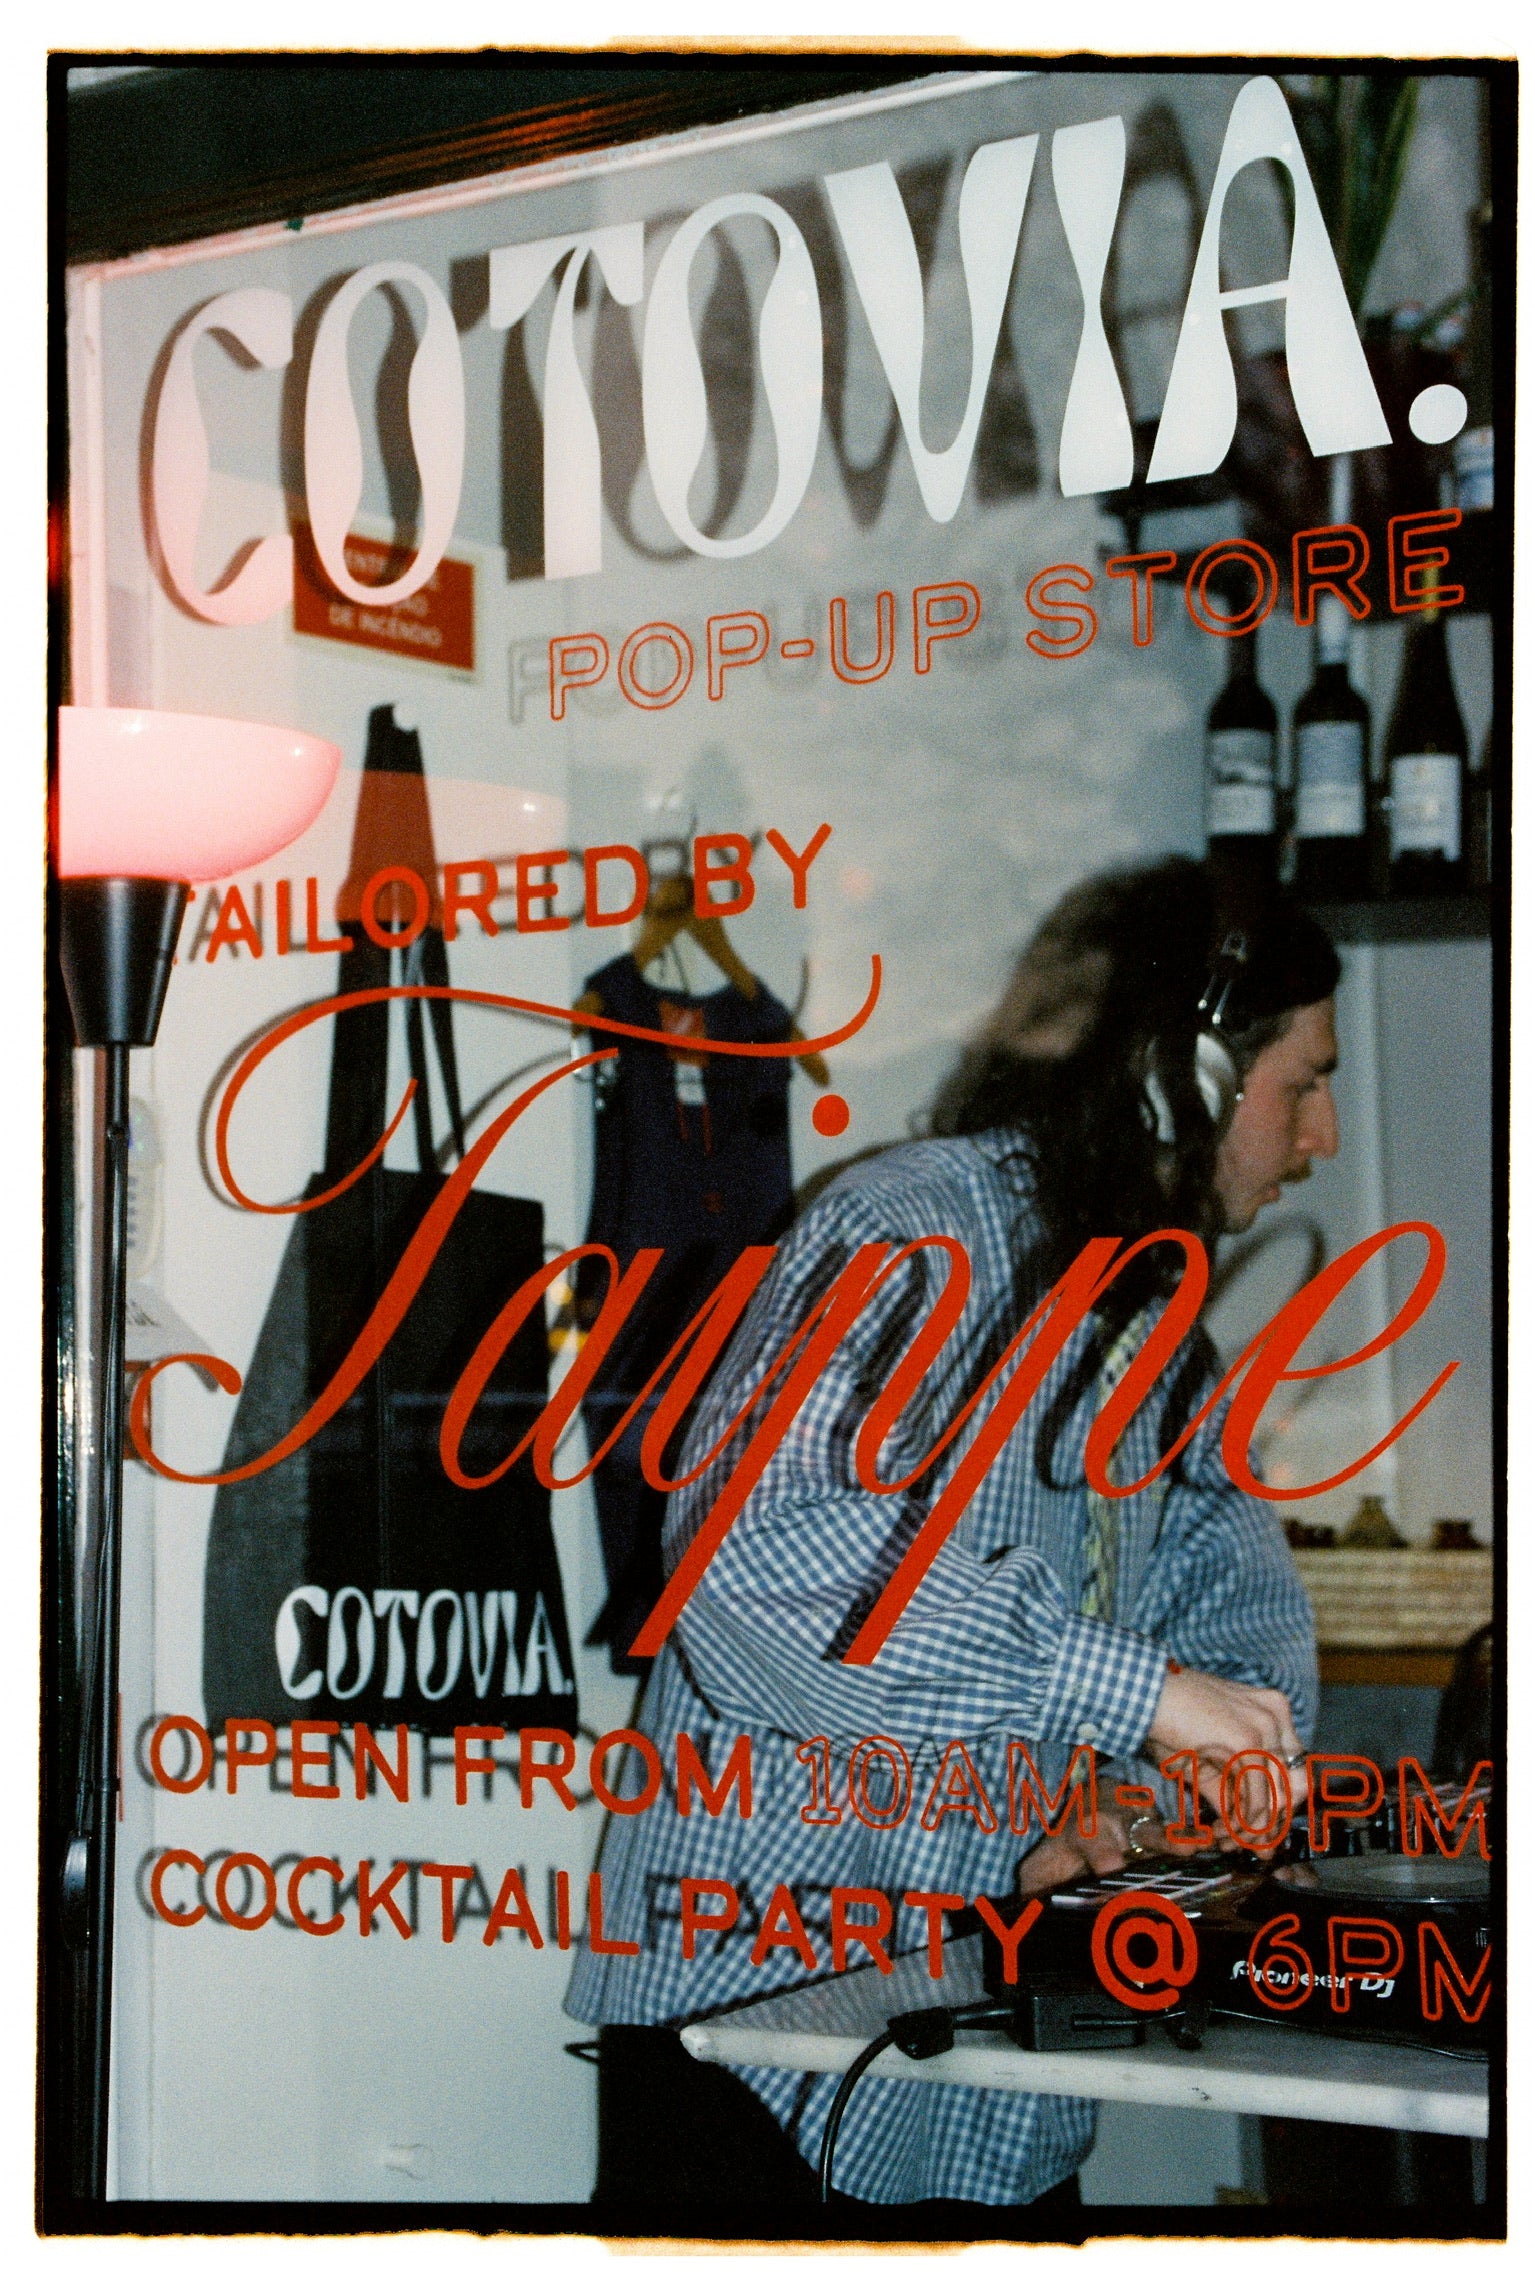 COTOVIA.
DE INCÊNDIO
POP-UP STORE
TAILORED BY
Taippe
COTOVIA.
OPEN FROM 10AM-10PM
COCKTAIL PARTY @ 6PM
Pioneer DJ